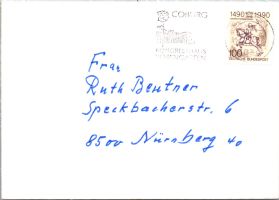 COBURG
KONGRESSHAUS
ROSENGARTEN
1490 1990
100
DEUTSCHE BUNDESPOST
Frau
Ruth Beutner
Speckbacherstr. 6
8500 Nürnberg 40